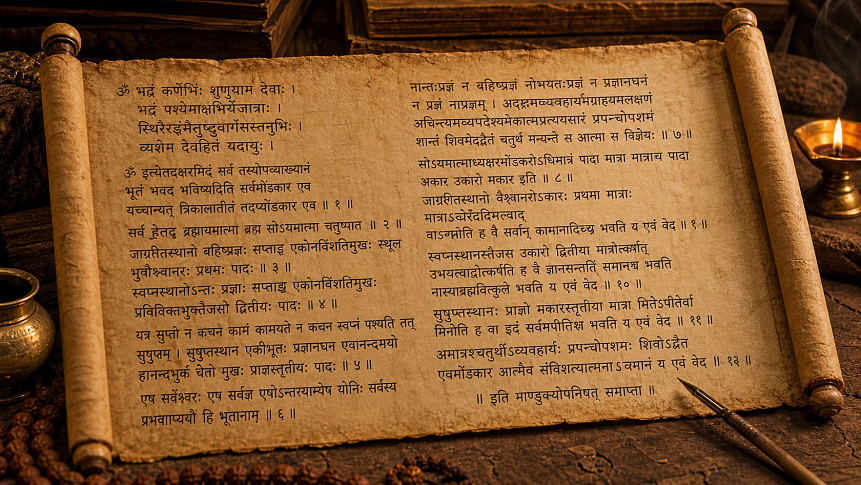 ॐ भद्रं कर्णेभिः शुणुयाम देवाः ।
भद्रं पश्येमाक्षभिर्येजात्राः ।
व्यशेम देवहितं यदायुः ।
ॐ इत्येतदक्षरमिदं सर्व तस्योपव्याख्यानं
भूतं भवद भविष्यदिति सर्वमोंडकार एव
यच्चान्यत् त्रिकालातीतं तदप्योंडकार एव ॥ १ ॥
सर्व ह्रेतद्व ब्रह्मायमात्मा ब्रह्म सोऽयमात्मा चतुष्पात ॥ २ ॥
जाग्ररीतस्थानो बहिष्प्रज्ञः सप्ताङ्ग एकोनविंशतिमुखः स्थूल
भुवीश्वानरः प्रथमः पादः ॥ ३ ॥
स्वप्नस्थानोऽन्तः प्रज्ञाः सप्ताङ्ग एकोनविंशतिमुखः
प्रविविक्तभुक्तैजसो द्वितीयः पादः ॥ ४ ॥
यत्र सुप्तो न कचन कामं कामयते न कचन स्वप्नं पश्यति तत्
सुषुप्तम् । सुषुप्तस्थान एकीभूतः प्रज्ञानघन एवानन्दमयो
हानन्दभुर्क चेतो मुखः प्राज्ञस्तृतीयः पादः ॥ ५ ॥
एष सर्वेश्वरः एष सर्वज्ञ एषोऽन्तरयाम्येष योनिः सर्वस्य
प्रभवााप्ययौं हि भूतानाम् ॥ ६ ॥
नान्तःप्रज्ञं न बहिष्प्रज्ञं नोभयतःप्रज्ञं न प्रज्ञानघनं
न प्रज्ञं नाप्रज्ञम् । अदृष्टमव्यवहार्यमग्राहयमलक्षणं
अचिन्त्यमव्यपदेश्यमेकात्मप्रत्ययसारं प्रपन्चोपशमं
शान्तं शिवमेदद्वैतं चतुर्थ मन्यन्ते स आत्मा स विज्ञेयः ॥ ७ ॥
सोऽयमात्माध्यक्षरमोंडकरोऽधिमात्रं पादा मात्रा मात्राच पादा
अकार उकारो मकार इति ॥ ८ ॥
जाग्ररीतस्थानो वैश्वानरोऽकारः प्रथमा मात्राः
वाऽप्नोति ह वै सर्वान् कामानादिच्छ भवति य एवं वेद ॥ ९ ॥
स्वप्नस्थानस्तैजस उकारो द्वितीया मात्रोत्कर्षात्
उभयत्वाद्रोत्कर्षति ह वै ज्ञानसन्ततिं समानश्च भवति
नास्याब्रह्मवित्कुले भवति य एवं वेद ॥ १० ॥
सुषुप्तस्थानः प्राज्ञो मकारस्तृतीया मात्रा मितेऽपीतेर्वा
मिनोति ह वा इदं सर्वमपीतिश्च भवति य एवं वेद ॥ ११ ॥
अमात्रश्चतुर्थोऽव्यवहार्यः प्रपन्चोपशमः शिवोऽद्वैत
एवमोंडकार आत्मैवं संविशत्यात्मनाऽवमानं य एवं वेद ॥ १३ ॥
॥ इति माण्डुक्योपनिषत् समाप्ता ॥